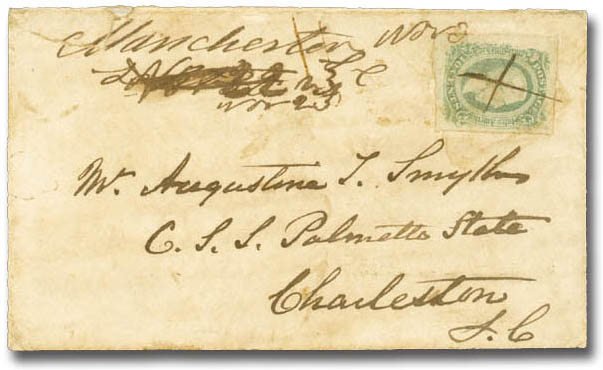 Manchester Nov 3
S C
Nov 23
Mr. Augustine T. Smythe
C. S. S. Palmetto State
Charleston
S. C